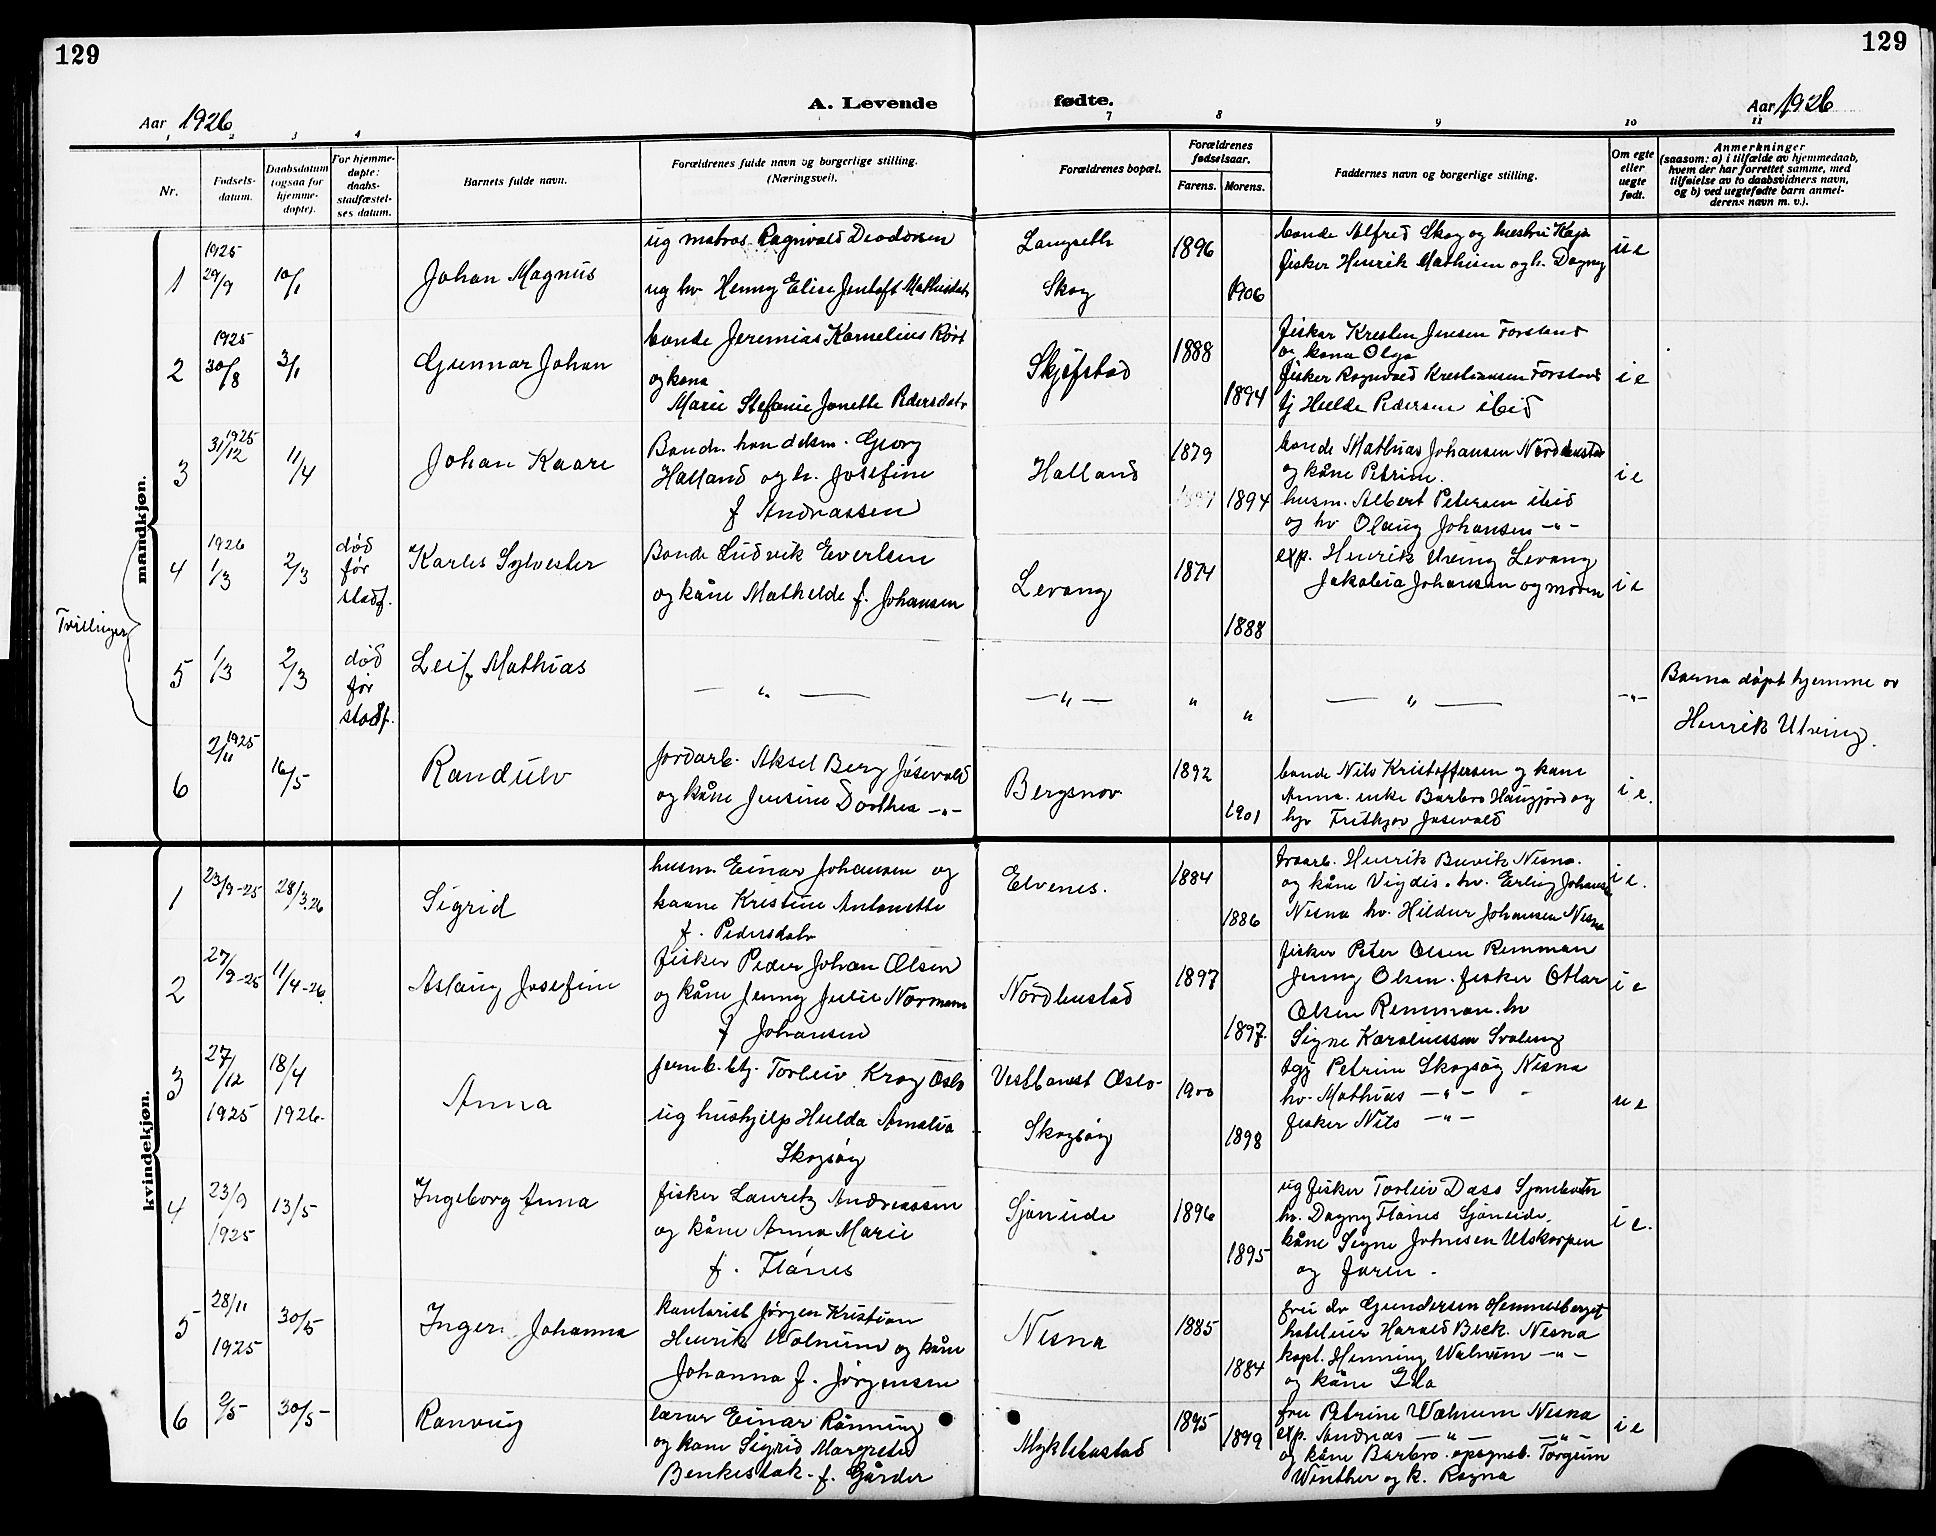 129
129
A. Levende fødte.
Aar 1926
Aar 1926
1 2 3 4 7 8 9 10 11
Nr.
Fødsels-
datum.
Daabsdatum
(ogsaa for
hjemme-
døpte).
For hjemme-
døpte:
daabs-
stadfæstel-
ses datum.
Barnets fulde navn.
Forældrenes fulde navn og borgerlige stilling.
(Næringsvei).
Forældrenes bopæl.
Forældrenes
fødselsaar.
Farens. Morens.
Faddernes navn og borgerlige stilling.
Om egte
eller
uegte
født.
Anmerkninger
(saasom: a) i tilfælde av hjemmedaab,
hvem der har forrettet samme, med
tilføielse av to daabsvidners navn,
og b) ved uegtefødte barn anmel-
derens navn m. v.).
mandkjøn.
1
1925
29/9
10/1
Johan Magnus
ug matros Ragnvald Deodorsen
ug hv Henny Elise Jentoft Mathisdatr
Langseth
Skog
1896
1906
bonde Alfred Skog og hustru Kaja
fisker Henrik Mathisen og h. Dagny
u e
2
1925
30/8
3/1
Gunnar Johan
bonde Jeremias Kornelius
og kona
Marie Stefanie Janette Pedersdatr
Skjefstad
1888
1894
fisker Kresten Jensen Forsland
og kona Olga
fisker Ragnvald Krestiansen Forsland
tj Hulde Pedersen ibid
i e
3
1925
31/12
11/4
Johan Kaare
Bonde handelsm. Georg
Halland og h. Josefine
f Andreassen
Halland
1879
1894
bonde Mathias Johansen Nordbustad
og kåne Petrine.
husm. Albert Petersen ibid
og hv Olaug Johansen -"-
i e
Trillinger
4
1926
1/3
2/3
død
før
stadf.
Karles Sylvester
Bonde Ludvik Evertsen
og kåne Mathelde f. Johansen
Levang
1874
1888
exp. Henrik Utving Levang
Jakobia Johansen og moren
i e
5
1/3
2/3
død
før
stadf.
Leif Mathias
— " —
— " —
"
"
— " —
-"-
Barna døpt hjemme av
Henrik Utving.
6
2/11 1925
16/5
Randulv
Jordarb. Aksel Berg Jusevold
og kåne Jensine Dorthea -"-
Bergsnov
1892
1901
bonde Nils Kristoffersen og kone
Anna. enke Barbro Haugjord og
Fritkjov Jusevold
i e.
kvindekjøn.
1
23/9-25
28/3.26
Sigrid
husm. Einar Johansen og
kaane Kristine Antonette
f. Pedersdatr
Elvenes.
1884
1886
Henrik Buvik Nesna.
og kåne Vigdis. hv. Erling Johansen
Nesna hv. Hildur Johansen Nesna
i e.
2
27/9-25
11/4-26.
Aslaug Josefine
fisker Peder Johan Olsen
og kåne Jenny Julie Normann
f Johansen
Nordbustad
1897
1897.
fisker Peter Olsen Remman
Jenny Olsen. fisker Otlar
Olsen Remman. hv
Signe Karoliussen Svaleng
i e
3
27/12
1925
18/4
1926.
Anna
jernb.btj. Torleiv Krog Oslo
ug hushjelp Hulda Amalia
Skogsøy
Vestbanest Oslo-
Skogsøy
1900
1898
Petrine Skogsøy Nesna
hv. Mathias -"-
fisker Nils -"-
u e
4
23/9
1925
13/5
Ingeborg Anna
fisker Lauritz Andreassen
og kåne Anna Marie
f. Flånes
Sjøneide
1896
1895
ug fisker Torleiv Dass Sjonbotn
hv. Dagny Flånes Sjøneide.
kåne Signe Johnsen Utskarpen
og faren.
i e.
5
28/11
1925
30/5
Inger Johanna
kontorist Jørgen Kristian
Henrik Walnum og kåne
Johanna f. Jørgensen
Nesna
1885
1884
fru dr Gundersen Hemnesberget
hoteleier Harald Beck. Nesna
kapt. Henning Walnum -"-
og kåne Gda
6
2/5
30/5
Ranveig
lærer Einar Rønning
og kone Sigrid Margrete
Benkestok. f. Gårder
Myklebustad
1895
1899
fru Petrine Walnum Nesna
exp. Andreas -"- -"-
og kåne Barbro. opsynsb. Torgeim
Winther og k. Ragna
i e